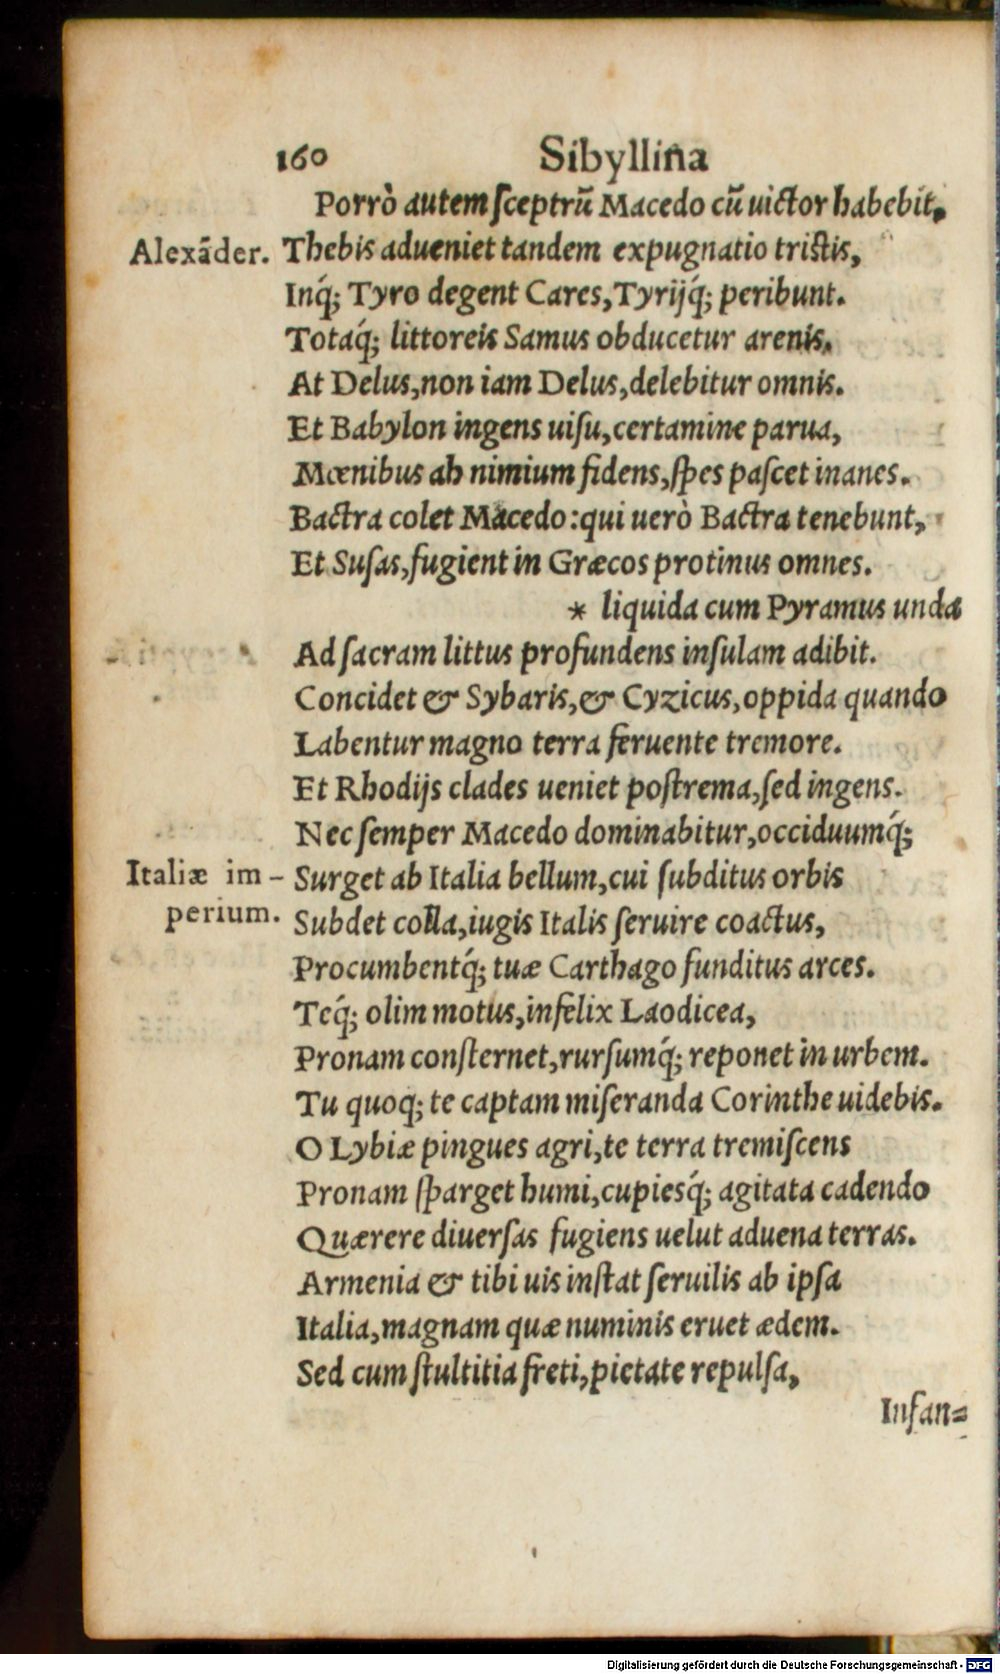 160 Sibyllina
Porrò autem ſceptrũ Macedo cũ uictor habebit,
Alexãder. Thebis adueniet tandem expugnatio triſtis,
Inq́; Tyro degent Cares, Tyrijq́; peribunt.
Totaq́; littoreis Samus obducetur arenis.
At Delus, non iam Delus, delebitur omnis.
Et Babylon ingens uiſu, certamine parua,
Mœnibus ah nimium fidens, ſpes paſcet inanes.
Bactra colet Macedo: qui uerò Bactra tenebunt,
Et Suſas, fugient in Græcos protinus omnes.
* liquida cum Pyramus unda
Ad ſacram littus profundens inſulam adibit.
Concidet & Sybaris, & Cyzicus, oppida quando
Labentur magno terra feruente tremore.
Et Rhodijs clades ueniet poſtrema, ſed ingens.
Nec ſemper Macedo dominabitur, occiduumq́;
Italiæ im- Surget ab Italia bellum, cui ſubditus orbis
perium. Subdet colla, iugis Italis ſeruire coactus,
Procumbentq́; tuæ Carthago funditus arces.
Teq́; olim motus, infelix Laodicea,
Pronam conſternet, rurſumq́; reponet in urbem.
Tu quoq; te captam miſeranda Corinthe uidebis.
O Lybiæ pingues agri, te terra tremiſcens
Pronam ſparget humi, cupiesq́; agitata cadendo
Quærere diuerſas fugiens uelut aduena terras.
Armenia & tibi uis inſtat ſeruilis ab ipſa
Italia, magnam quæ numinis eruet ædem.
Sed cum ſtultitia freti, pietate repulſa,
Inſan=
Digitalisierung gefördert durch die Deutsche Forschungsgemeinschaft - DFG